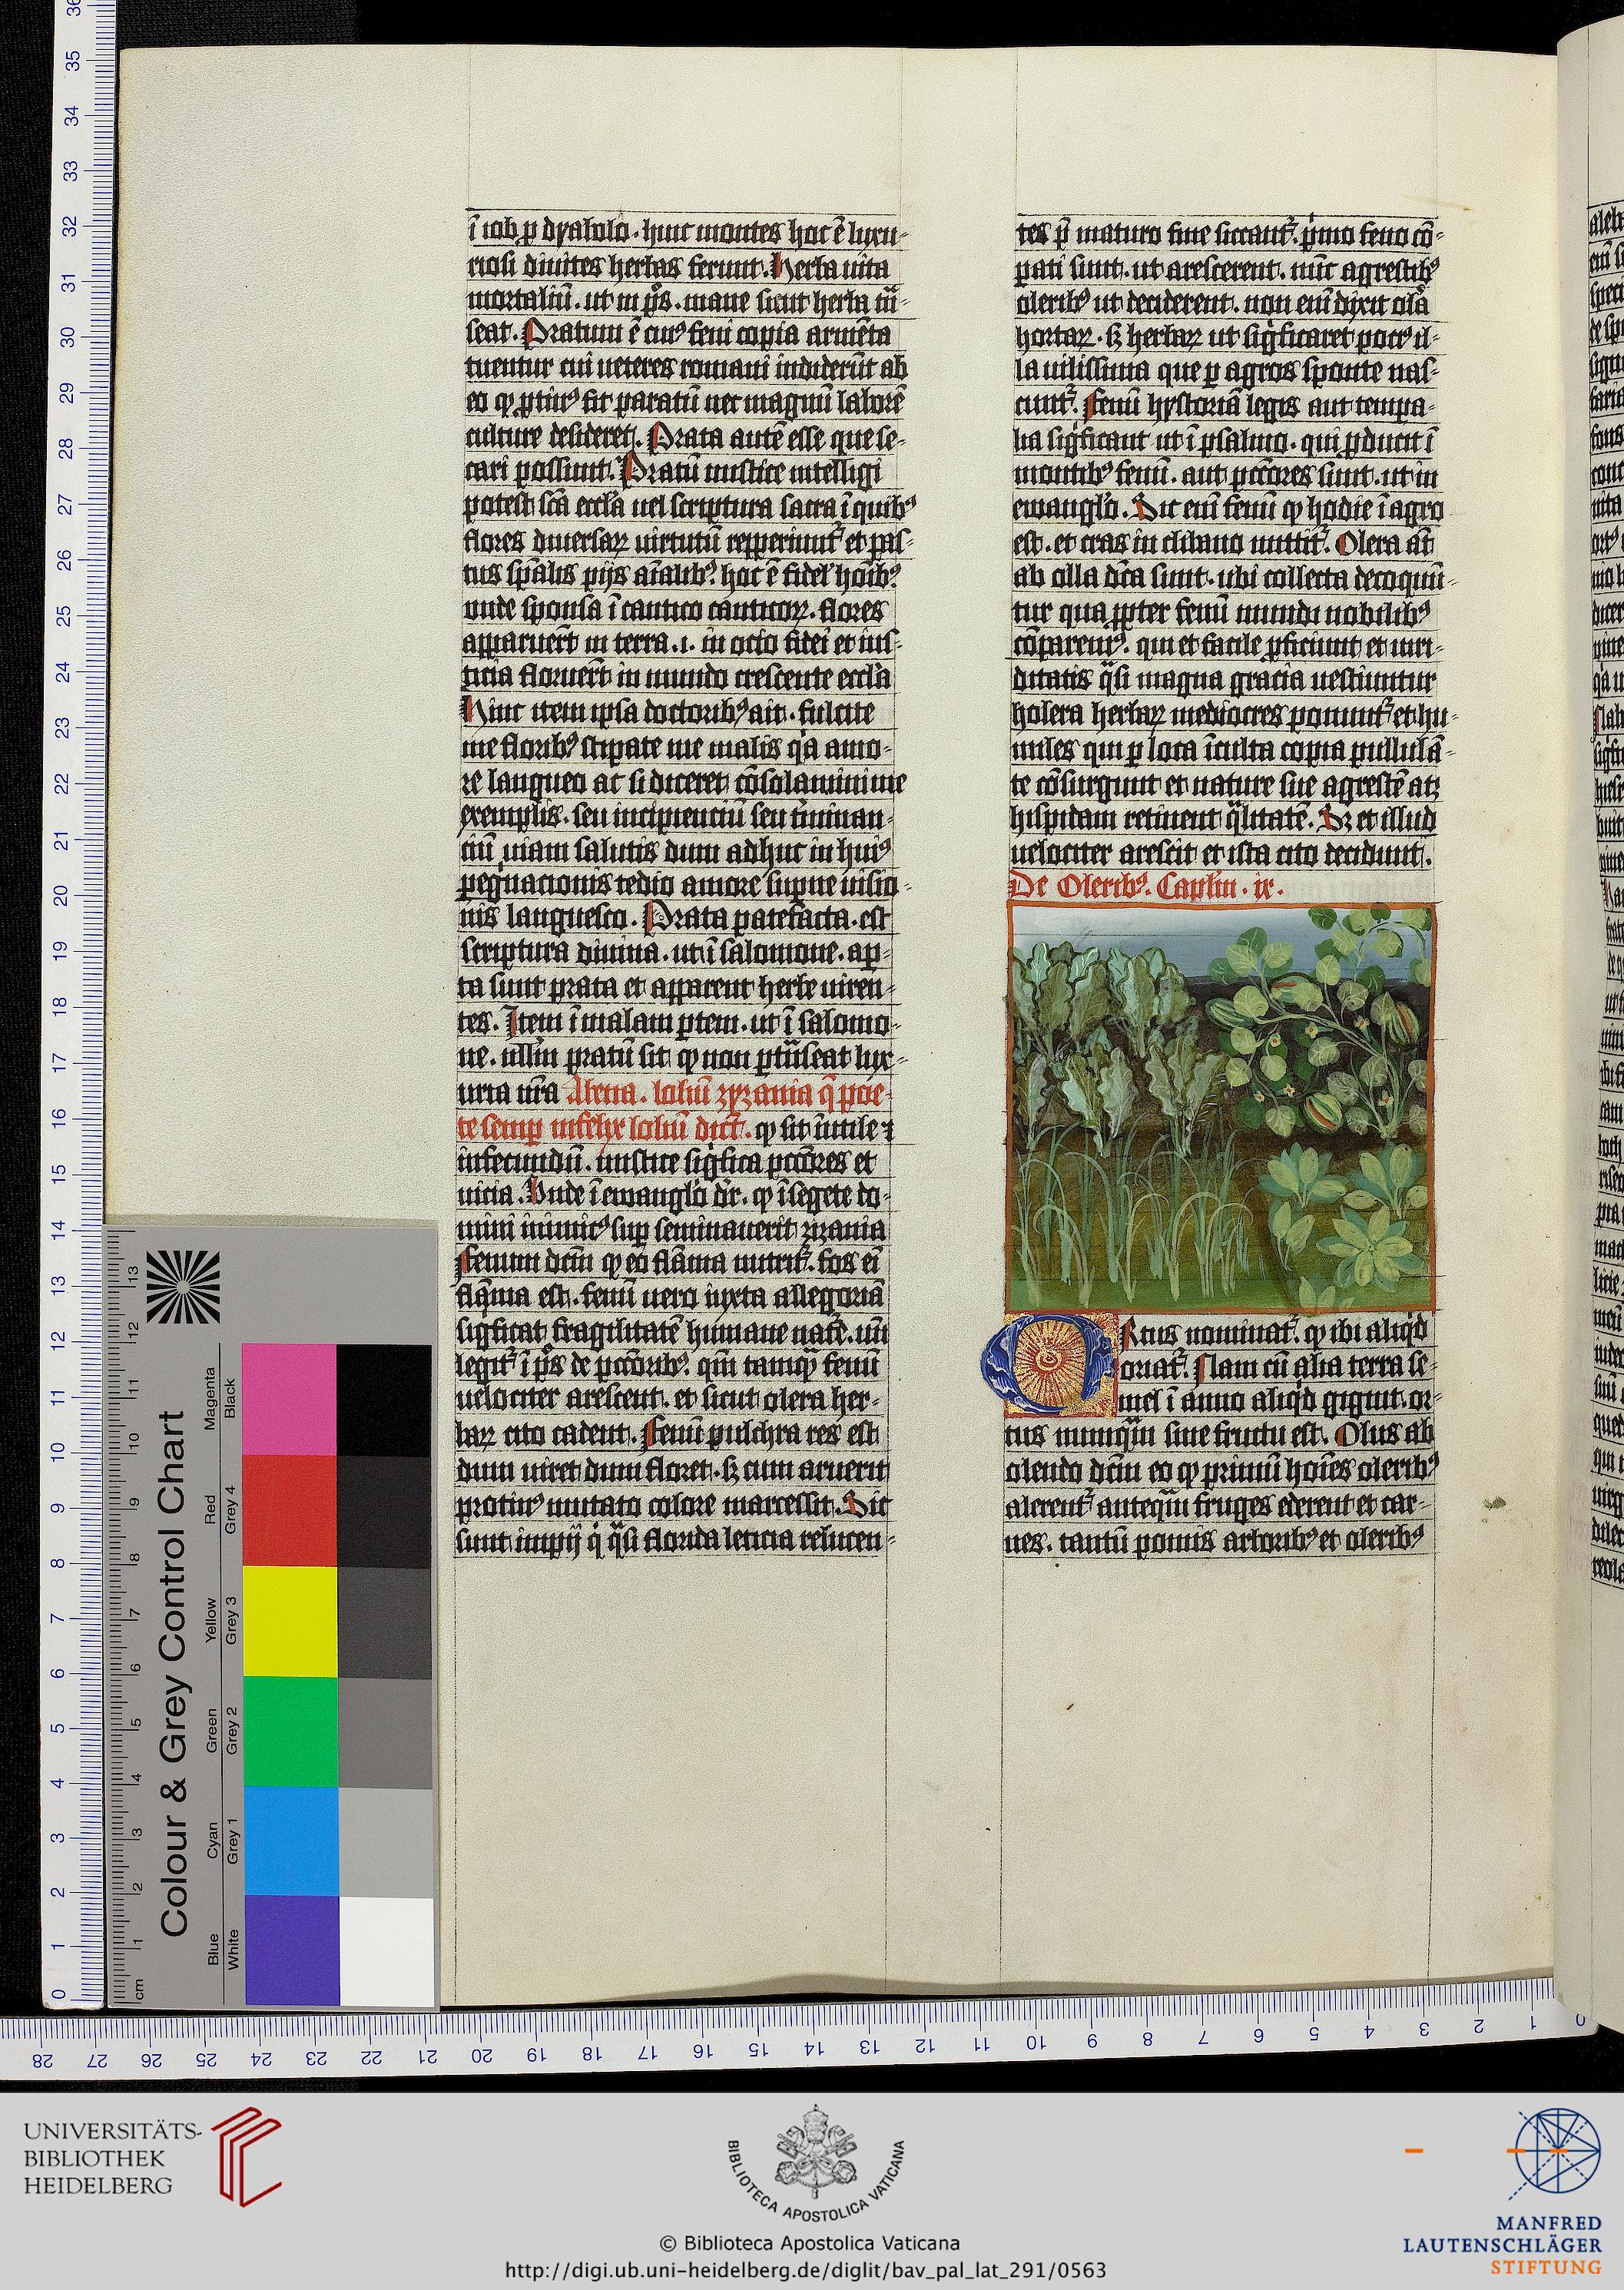 ī iob p dyabolo. hinc montes hoc ē luxu-
riosi diuites herbas ferunt. Herba uita
mortaliū. ut in ps. mane sicut herba trā-
seat. Pratum ē cuiꝰ feni copia armēta
tuentur cui ueteres romani indiderūt ab
eo ꝙ ptinꝰ sit paratū nec magnū laborē
culture desideret. Prata autē esse que se-
cari possunt. Pratū mistice intelligi
potest scā ecclia uel scriptura sacra ī quibꝰ
flores diuersaꝝ uirtutū repperiunt᷑ et pas-
tus spālis pijs aīalibꝰ. hoc ē fidel' hoībꝰ.
unde sponsa ī cantico canticoꝝ. flores
apparuerūt in terra .i. in ocio fidei et ius-
ticia floruerūt in mundo crescente ecclia
Hinc item ipsa doctoribꝰ ait. fulcite
me floribꝰ stipate me malis qa amo-
re langueo ac si diceret cōsolamini me
exemplis. seu incipienciū seu tminan-
ciū uiam salutis dum adhuc in huiꝰ
pegnacionis tedio amore supne uisio-
nis languesco. Prata patefacta est
scriptura diuina. ut ī salomone. ap-
ta sunt prata et apparent herbe uiren-
tes. Item ī malam ptem. ut ī salomo-
ne. ullū pratū sit ꝙ non ptrāseat lux-
uria nrā Auena. loliū zyzania q̄ poe-
te semp infelyx loliū dict. ꝙ sit īutile ⁊
infecundū. mistice sigfica pctōres et
uicia. Unde ī ewanglo dr. ꝙ ī segete do-
mini inimicꝰ sup seminauerit zyzania
Fenum dcm ꝙ eo flāma nutrit᷑. fos eī
flāma est. fenū uero iuxta allegoriā
sigficat fragilitatē humane natē. un
legit᷑ ī ps de pctōribꝰ. qm tamꝙ fenū
uelociter arescent. et sicut olera her-
baꝝ cito cadent. Fenū pulchra res est
dum uiret dum floret. sꝫ cum aruerit
protinꝰ mutato colore marcessit. Sic
sunt impij q qsi florida leticia relucen-
tes p maturo fine siccant᷑. pmo feno cō-
pati sunt. ut arescerent. nūc agrestibꝰ
oleribꝰ ut deciderent. non enī dixit olā
hortaꝝ. sꝫ herbaꝝ ut sigficaret pociꝰ il-
la uilissima que p agros sponte nas-
cunt᷑. Fenū hystoriā legis aut tempa-
lia sigficant ut ī psalmo. qui pducit ī
montibꝰ fenū. aut pctōres sunt. ut in
ewanglo. Sic enī fenū ꝙ hodie ī agro
est. et cras in clibano mittit᷑. Olera aūt
ab olla dcā sunt. ubi collecta decoquū-
tur qua ppter fenū mundi nobilibꝰ
cōparetꝰ. qui et facile pficiunt et uiri-
ditatis qsi magna gracia uestiuntur
holera herbaꝝ mediocres ponunt᷑ et hu-
miles qui p loca īculta copia pullulā-
te cōsurgunt et nature sue agrestē atꝫ
hispidam retinent qlitatē. Sꝫ et illud
uelociter arescit et ista cito decidunt.
De Oleribꝰ. Caplm. ix.
ORtus nominat᷑. ꝙ ibi aliqd
oriat᷑. Nam cū alia terra se-
mel ī anno aliqd gignit. or-
tus numqm sine fructu est. Olus ab
olendo dcm eo ꝙ primū hoīes oleribꝰ
alerent᷑ anteqm fruges ederent et car-
nes. tantū pomis arboribꝰ et oleribꝰ
Colour & Grey Control Chart
Blue Cyan Green Yellow Red Magenta
White Grey 1 Grey 2 Grey 3 Grey 4 Black
cm
UNIVERSITÄTS-
BIBLIOTHEK
HEIDELBERG
BIBLIOTECA APOSTOLICA VATICANA
© Biblioteca Apostolica Vaticana
http://digi.ub.uni-heidelberg.de/diglit/bav_pal_lat_291/0563
MANFRED
LAUTENSCHLÄGER
STIFTUNG